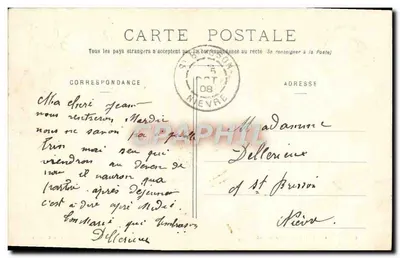 CARTE POSTALE
Tous les pays étrangers n'acceptent pas la correspondance au recto (Se renseigner à la Poste)
CORRESPONDANCE
ADRESSE
OCT
08
NIÈVRE
Ma chère Jeanne
nous rentrerons Mardi
nous ne savon pas
train mai seu qui
viendrons au devan de
nou il nauron qua
partir après Dejeuner
c'est a dire apré Midi
qui
Dellerieux
Madamme
Dellerieux
St Brisson
Nièvre